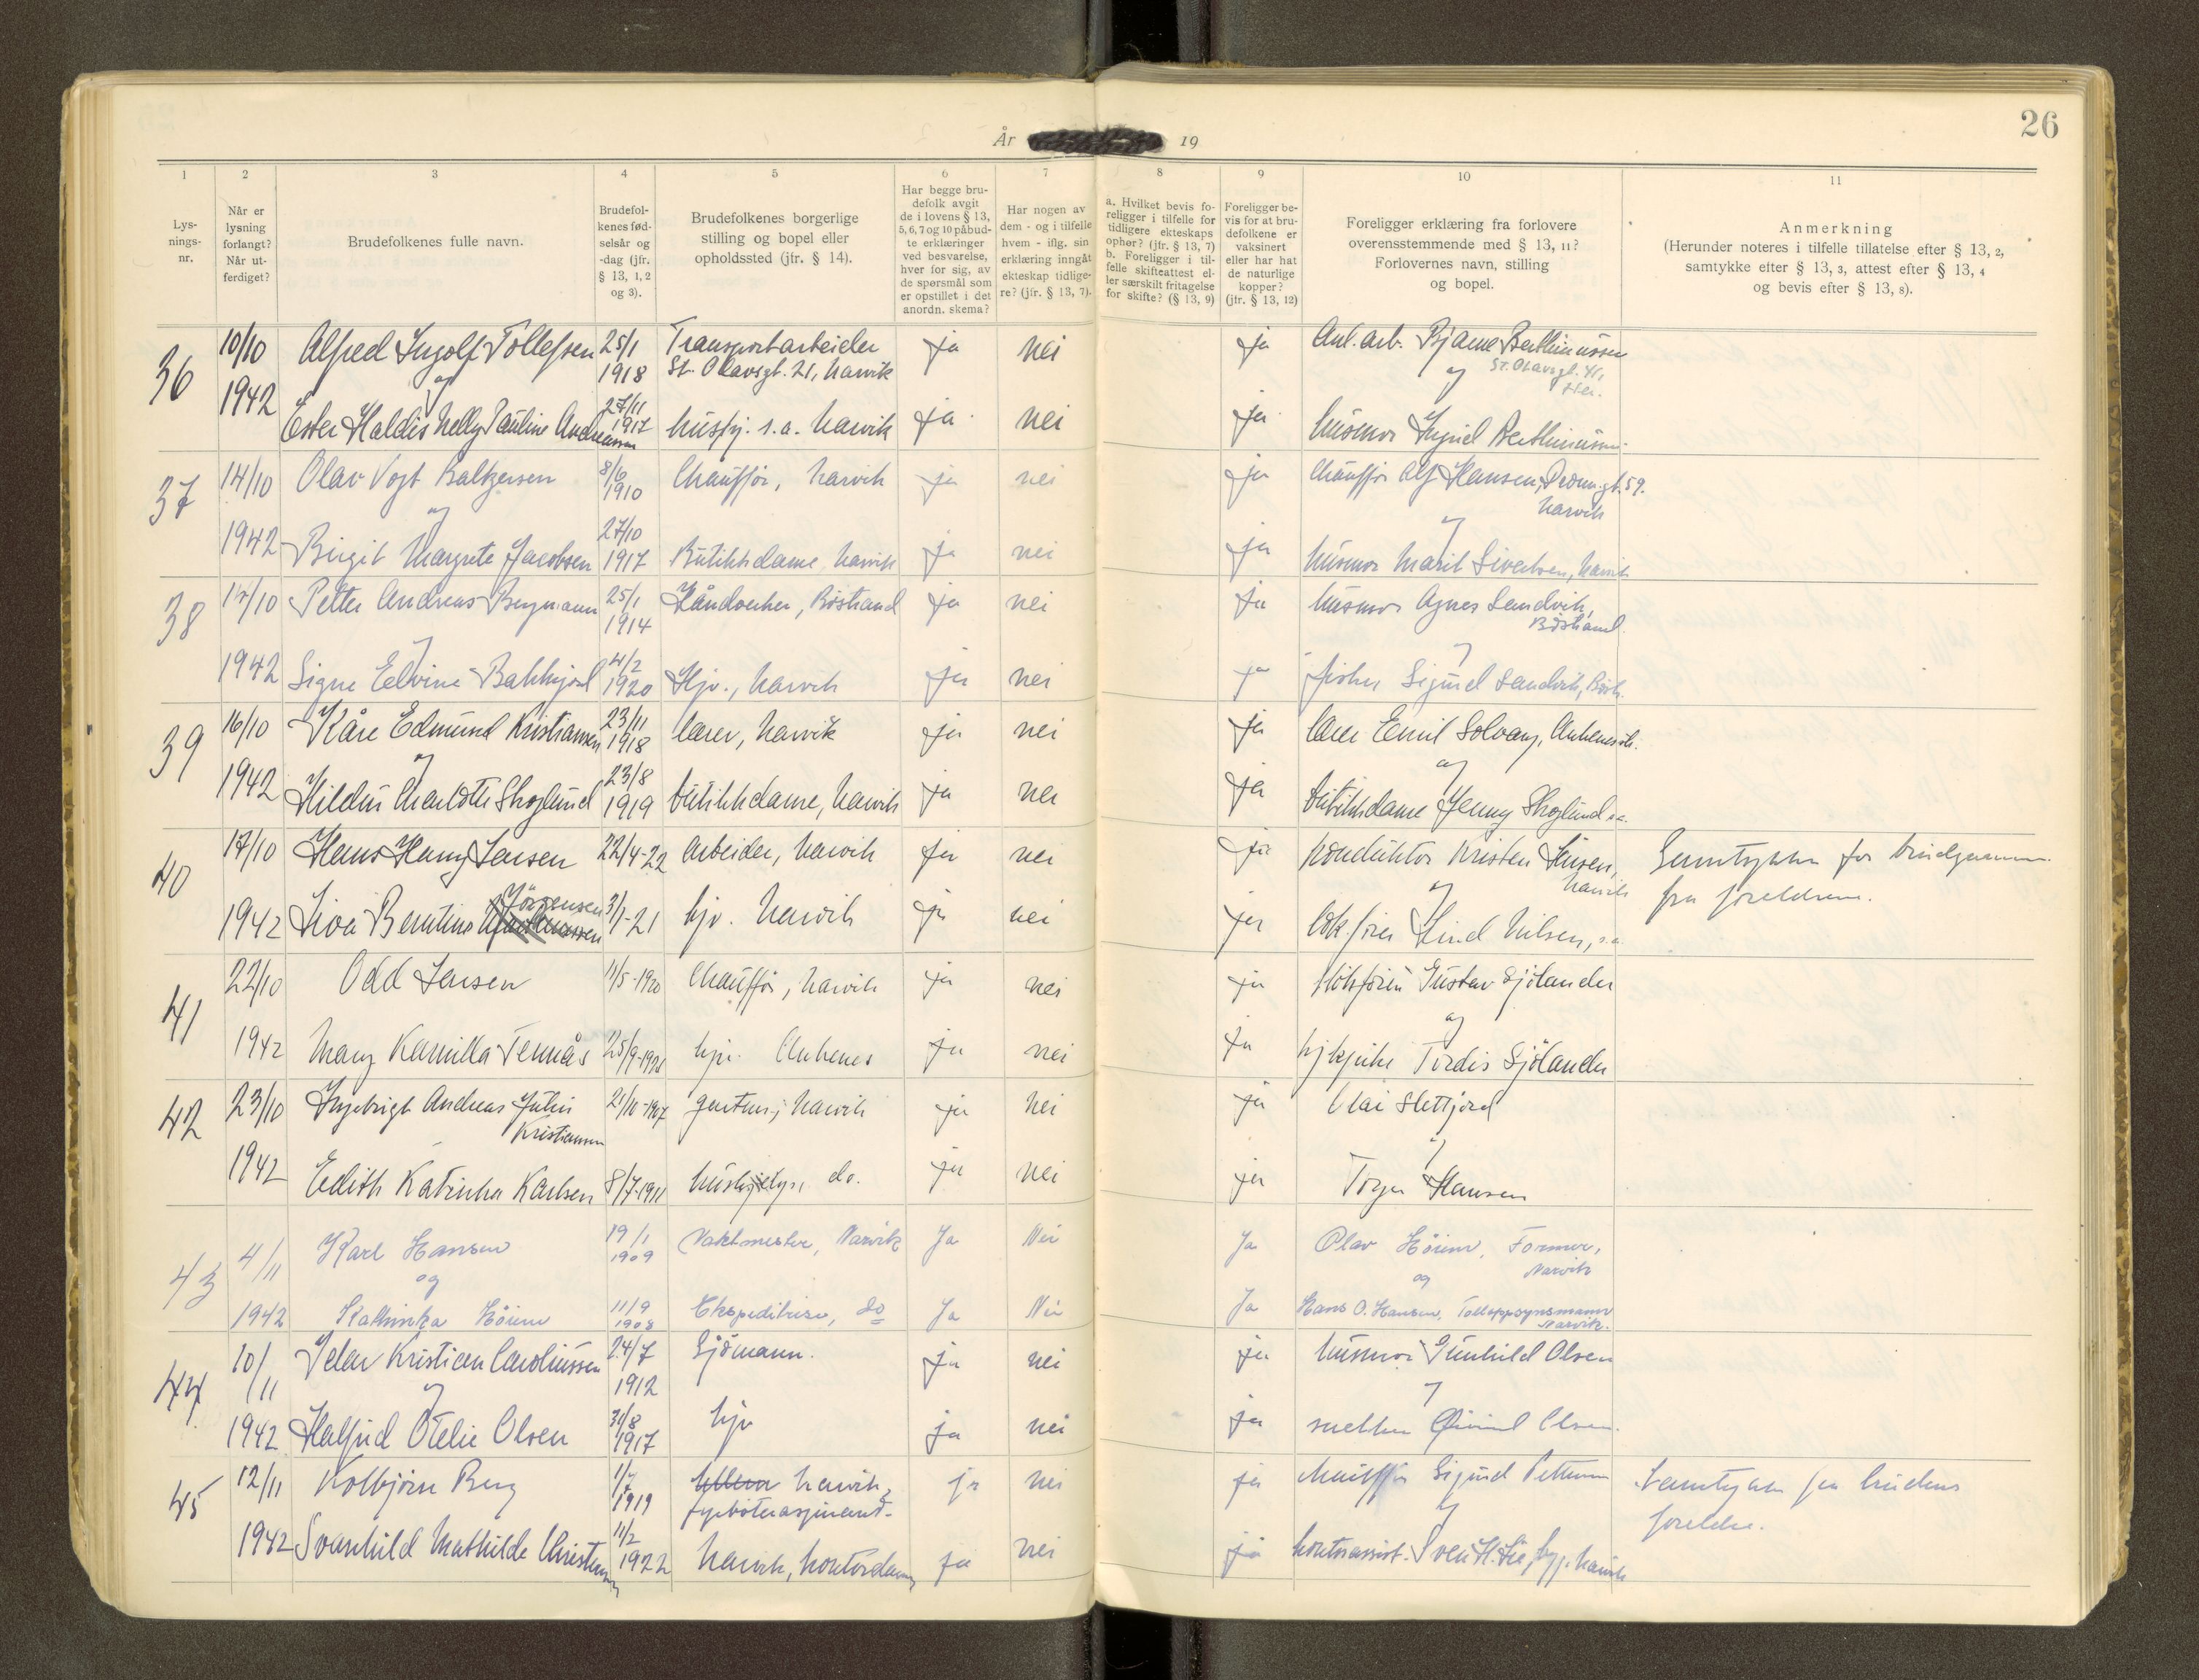 26
År 19
1 2 3 4 5 6 7 8 9 10 11
Lys-
nings-
nr.
Når er
lysning
forlangt?
Når ut-
ferdiget?
Brudefolkenes fulle navn.
Brudefol-
kenes fød-
selsår og
-dag (jfr.
§ 13, 1, 2
og 3).
Brudefolkenes borgerlige
stilling og bopel eller
opholdssted (jfr. § 14).
Har begge bru-
defolk avgit
de i lovens § 13,
5, 6, 7 og 10 påbud-
te erklæringer
ved besvarelse,
hver for sig, av
de spørsmål som
er opstillet i det
anordn. skema?
Har nogen av
dem - og i tilfelle
hvem - iflg. sin
erklæring inngåt
ekteskap tidlige-
re? (jfr. § 13, 7).
a. Hvilket bevis fo-
religger i tilfelle for
tidligere ekteskaps
ophør? (jfr. § 13, 7)
b. Foreligger i til-
felle skifteattest el-
ler særskilt fritagelse
for skifte? (§ 13, 9)
Foreligger be-
vis for at bru-
defolkene er
vaksinert
eller har hat
de naturlige
kopper?
(jfr. § 13, 12)
Foreligger erklæring fra forlovere
overensstemmende med § 13, 11?
Forlovernes navn, stilling
og bopel.
Anmerkning
(Herunder noteres i tilfelle tillatelse efter § 13, 2,
samtykke efter § 13, 3, attest efter § 13, 4
og bevis efter § 13, 8).
36 10/10 Alfred Ingolf Tollefsen 25/1 Transportarbeider ja nei ja Anl.arb. Bjarne Berthinussen
1918 St. Olavsgt. 21, Narvik St. Olavsgt. 41,
og og
1942 Ester Haldis Nelly Pauline Andreassen 27/11 1917 husbg. s.a. Narvik ja nei ja husmor Ingrid Berthinussen
37 14/10 Olav Vogt Baltzersen 8/6 1910 Chauffør, Narvik ja nei ja Chauffør Alf Hansen, Dronn.gt. 59.
Narvik
og og
1942 Birgit Margrete Jacobsen 27/10 1917 Butikkdame Narvik ja nei ja husmor Marit Sivertsen, Narvik
38 14/10 Petter Andreas Bergmann 25/1 1914 Håndverker, Böstrand ja nei ja husmor Agnes Sandvik,
Böstrand
og og
1942 Signe Edvine Bakkejord 4/2 1920 Hjv., Narvik ja nei ja fisker Sigurd Sandvik, Böstr.
39 16/10 Kåre Edmund Kristiansen 23/11 1918 lærer, Narvik ja nei ja lærer Emil Solvang, Ankenesstr.
og og
1942 Hildur Charlotte Skoglund 23/8 1919 butikkdame, Narvik ja nei ja butikkdame Jenny Skoglund s.a.
40 17/10 Hans Harry Jensen 22/4-22 arbeider, Narvik ja nei ja konduktör Kristen Jensen, Samtykke for brudgommen
Narvik fra foreldrene.
Jörgensen og
1942 Liva Berntine 3/1-21 hjv. Narvik ja nei ja lok.förer Lind Nilsen, s.a.
41 22/10 Odd Jensen 11/5-1920 Chauffør, Narvik ja nei ja Gustav Sjölander
og
1942 Mary Kamilla Tennås 25/9-1921 hjv. Ankenes ja nei ja Tordis Sjölander
42 23/10 Ingebrigt Andreas Julius 21/10-1907 Narvik ja nei ja Olai Slettjord
Kristiansen
og
1942 Edith Katinka Karlsen 8/7-1911 do. ja nei ja Hansen
43 4/11 Karl Hansen 19/1 1909 Vaktmester, Narvik Ja Nei Ja Olav Höiem, Former,
Narvik
og og
1942 Kathinka Höiem 11/9 1908 Ekspeditrise, do Ja Nei Ja Hans O. Hansen, Tolloppsynsmann
Narvik.
44 10/11 Kristian Caroliussen 24/7 1912 Sjömann. ja nei ja husmor Gunhild Olsen
og og
1942 Halfrid Otelie Olsen 31/8 1917 hjv ja nei ja snekker Øivind Olsen.
45 12/11 Kolbjörn Berg 1/7 1919 Narvik, ja nei ja Chauffør Sigurd Pettersen Samtykke fra brudens
fyrböteraspirant. foreldre.
og
1942 Svanhild Mathilde Christensen 11/2 1922 Narvik, kontordame ja nei ja kontorassist. Narvik